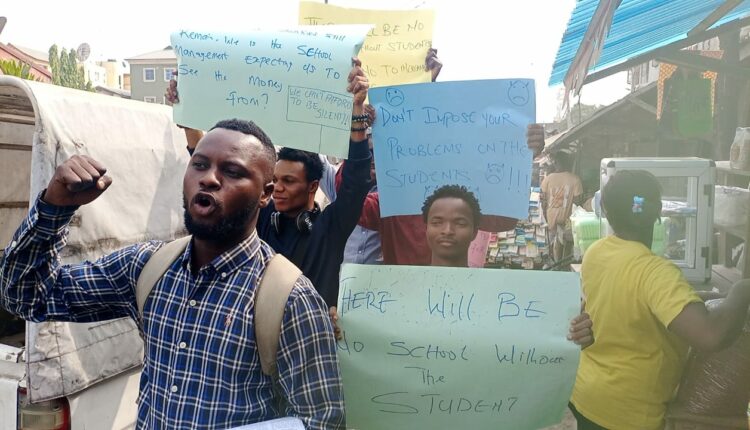 Remain. We is the School
Management Expecting us To
See the Money
from?
WE CAN'T AFFORD
TO BE SILENT!!
WILL BE NO
STUDENTS
NO TO
DON'T IMPOSE YOUR
PROBLEMS ON THE
STUDENTS !!!
HERE WILL BE
NO SCHOOL WITHOUT
THE
STUDENT